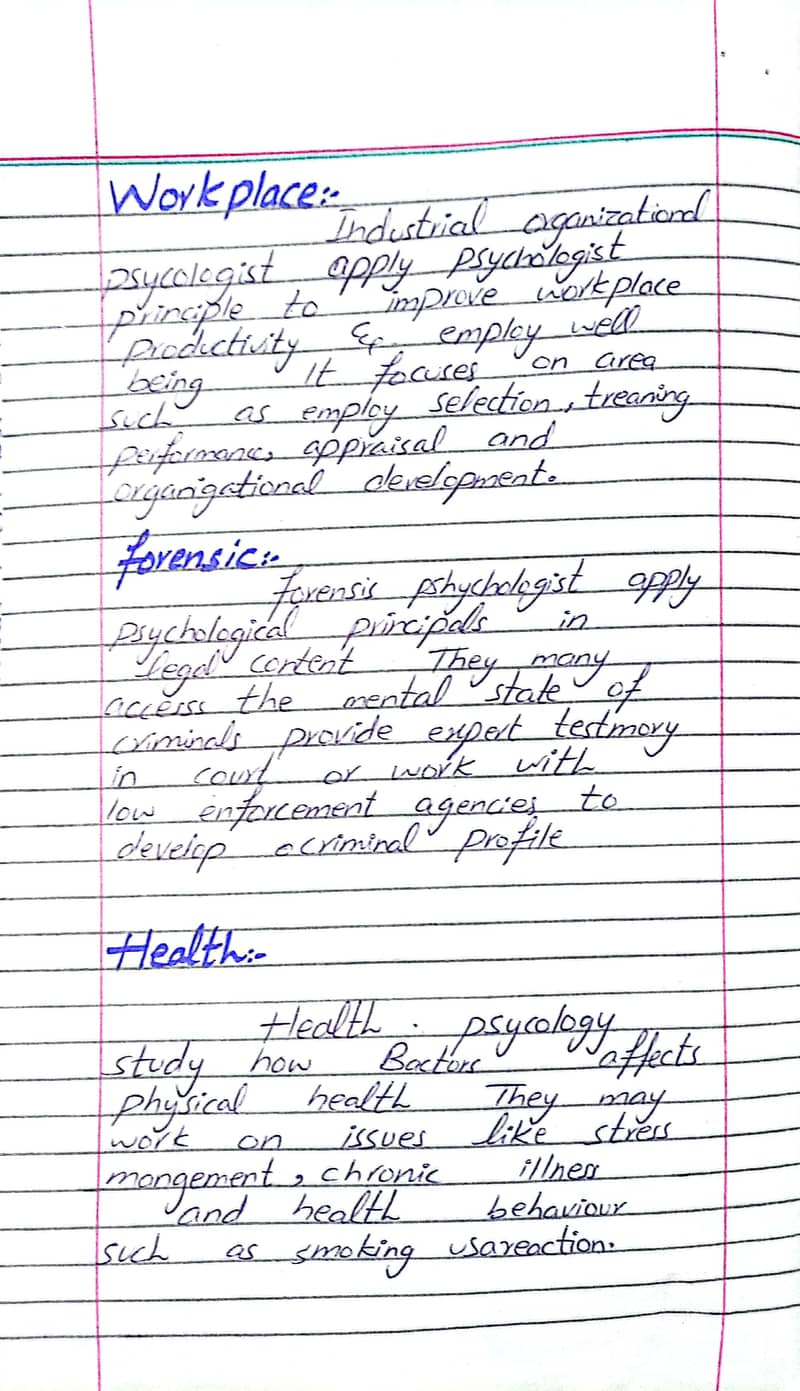 Workplace:-
Industrial oganizational
psycologist apply psychologist
principle to improve workplace
productivity & employ well
being It focuses on area
such as employ selection, treaning
performance, appraisal and
organigational development.
forensic:-
forensis pshychologist apply
psychological principals in
legal content They many
accesss the mental state of
criminals provide expert testmory
in court or work with
low enforcement agencies to
develop a criminal profile
Health:-
Health psycology
study how Bactors affects
physical health They may
work on issues like stress
mangement, chronic illness
and health behaviour
such as smoking